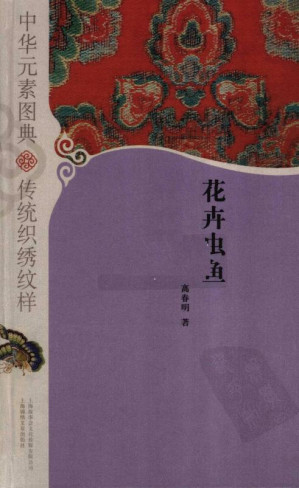 中华元素图典
传统织绣纹样
花卉虫鱼
高春明 著